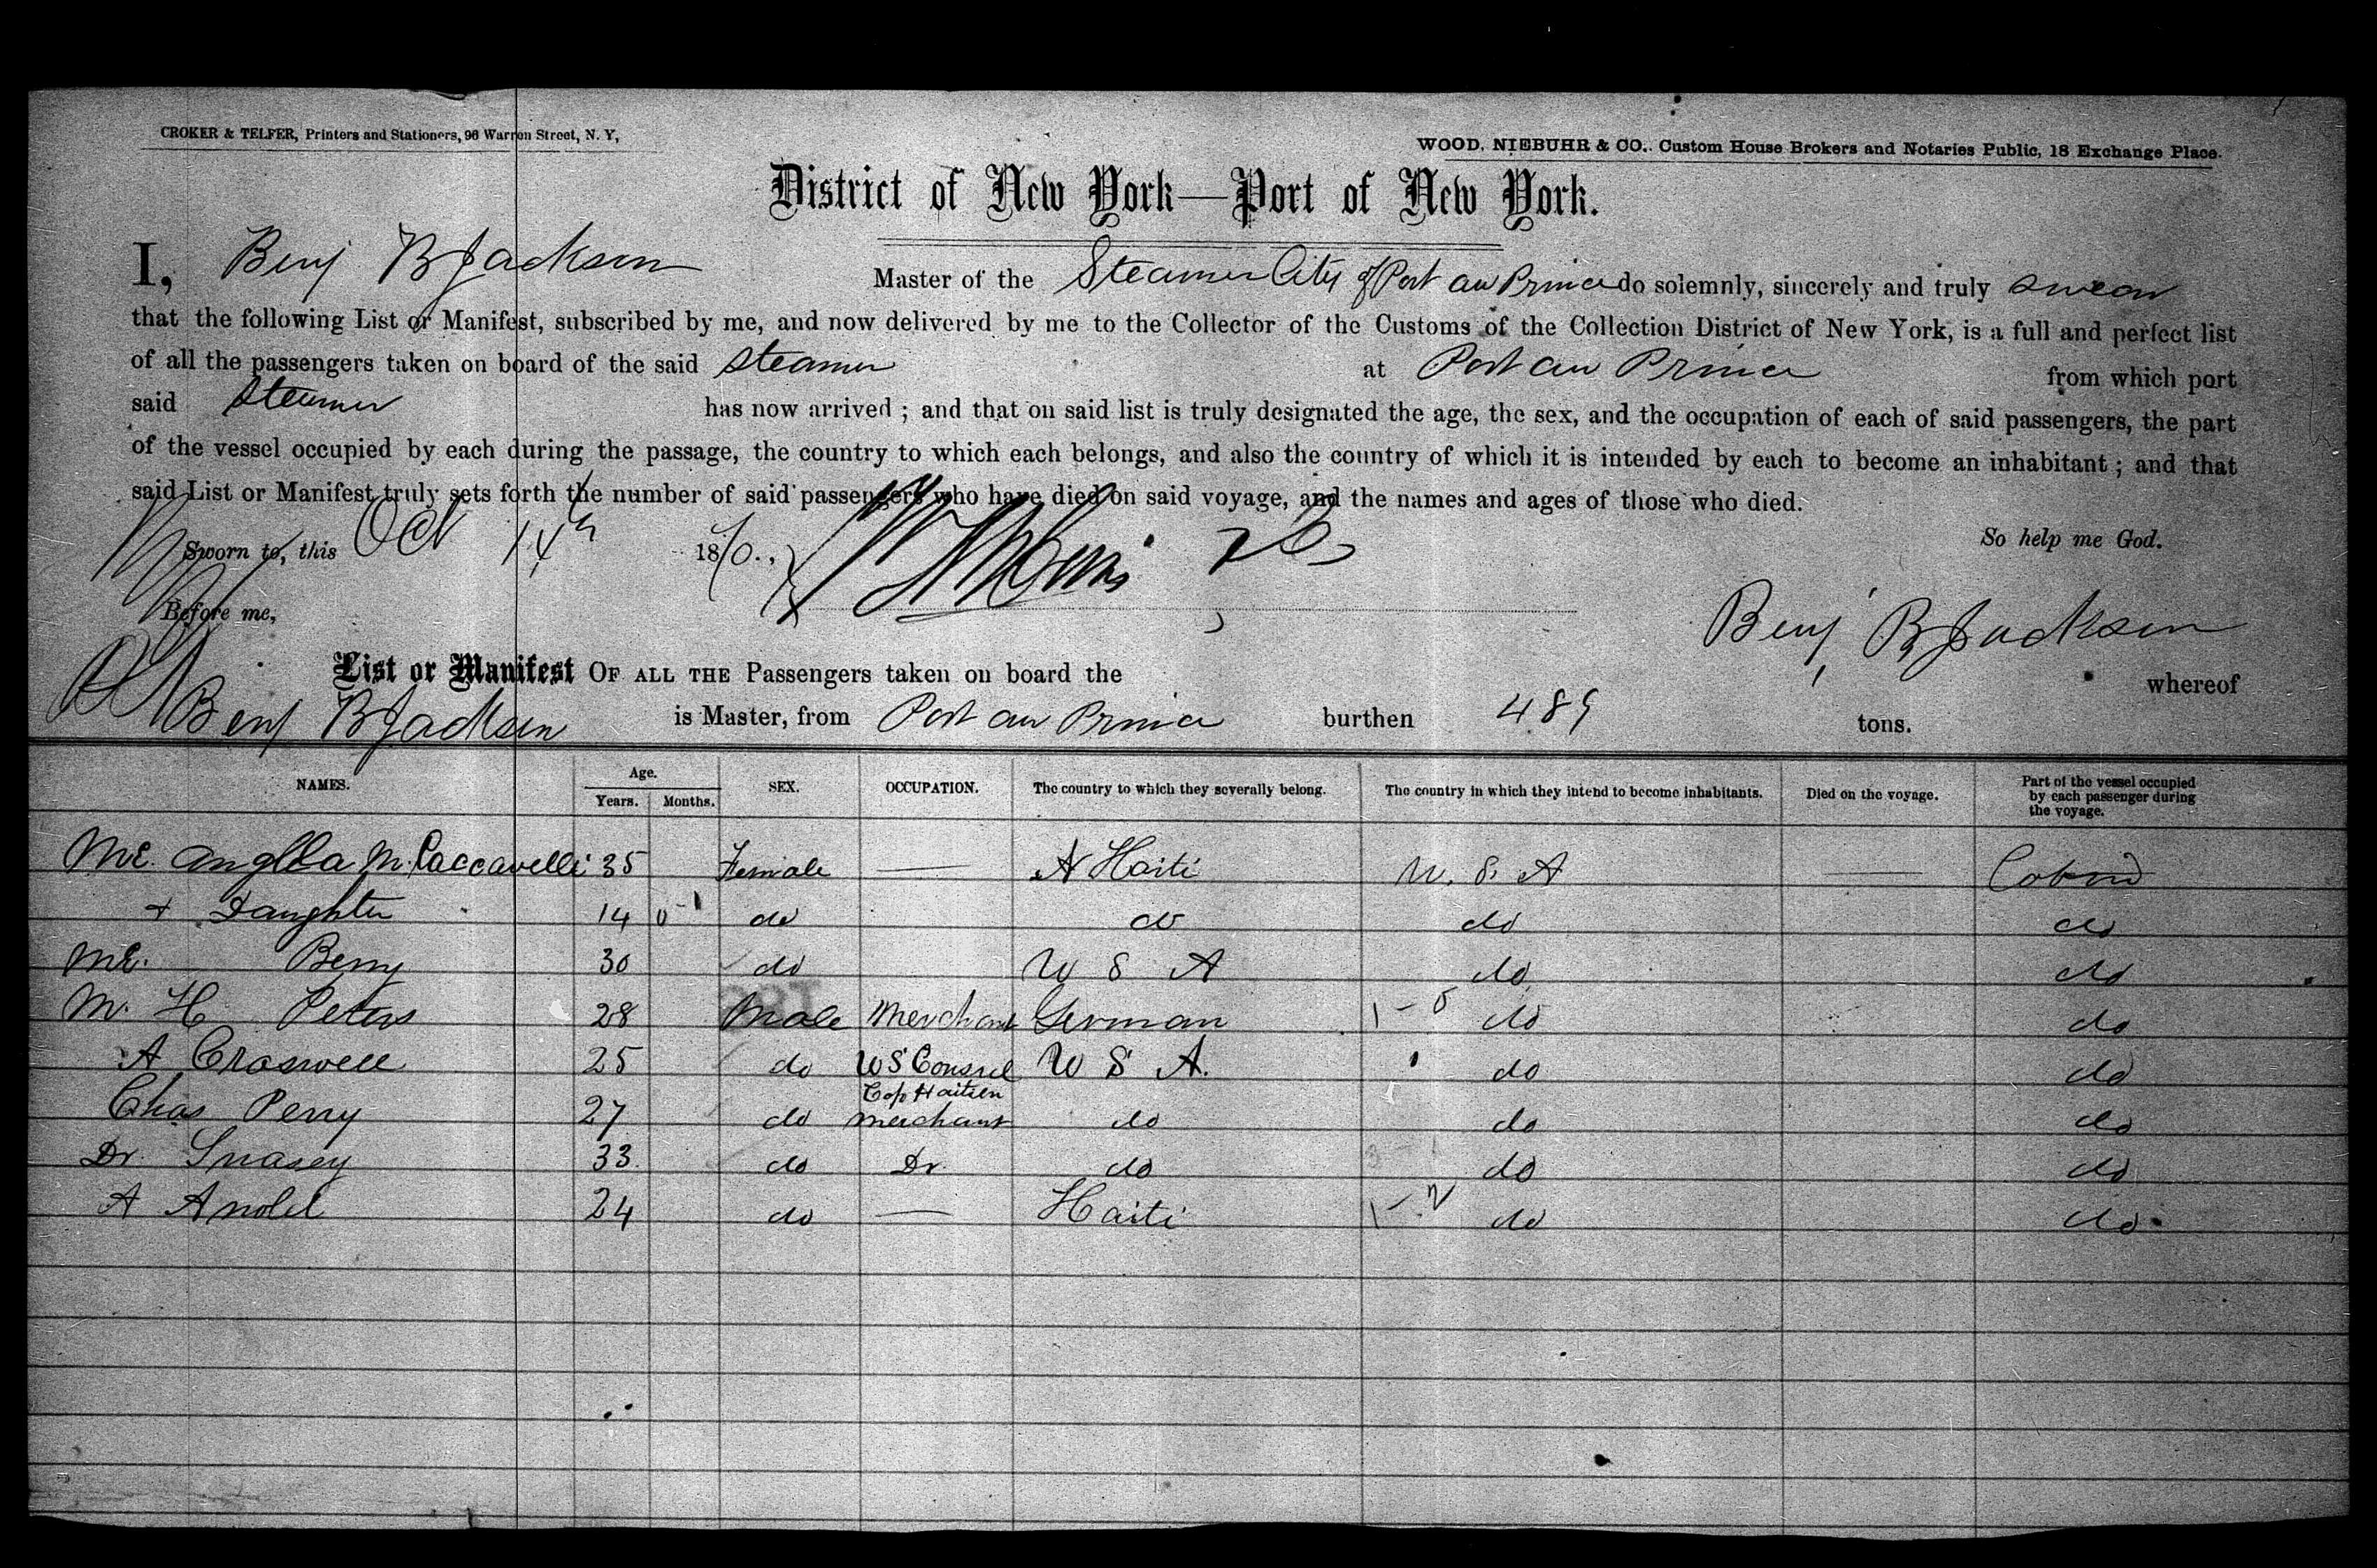 CROKER & TELFER, Printers and Stationers, 96 Warren Street, N. Y,
WOOD, NIEBUHR & CO., Custom House Brokers and Notaries Public, 18 Exchange Place.
District of New York—Port of New York.
I, Benj B Jackson Master of the Steamer City of Port au Prince do solemnly, sincerely and truly swear
that the following List or Manifest, subscribed by me, and now delivered by me to the Collector of the Customs of the Collection District of New York, is a full and perfect list
of all the passengers taken on board of the said Steamer at Port au Prince from which port
said Steamer has now arrived ; and that on said list is truly designated the age, the sex, and the occupation of each of said passengers, the part
of the vessel occupied by each during the passage, the country to which each belongs, and also the country of which it is intended by each to become an inhabitant ; and that
said List or Manifest truly sets forth the number of said passengers who have died on said voyage, and the names and ages of those who died.
Sworn to, this Oct 14th 1870., So help me God.
Before me,
Benj B Jackson
List or Manifest OF ALL THE Passengers taken on board the whereof
Benj B Jackson is Master, from Port au Prince burthen 489 tons.
NAMES. Age. Years. Months. SEX. OCCUPATION. The country to which they severally belong. The country in which they intend to become inhabitants. Died on the voyage. Part of the vessel occupied by each passenger during the voyage.
M M. Paccavelli 35 Female — Haiti U. S. A — Cabin
+ Daughter 14 do do do do
30 do U S A do do
M. H Peters 28 Male Merchant German do do
A Craswell 25 do US Consul U S A. do do
Cap Haitien
Chas Perry 27 do merchant do do do
Dr. 33 do Dr. do do do
A 24 do — Haiti do do